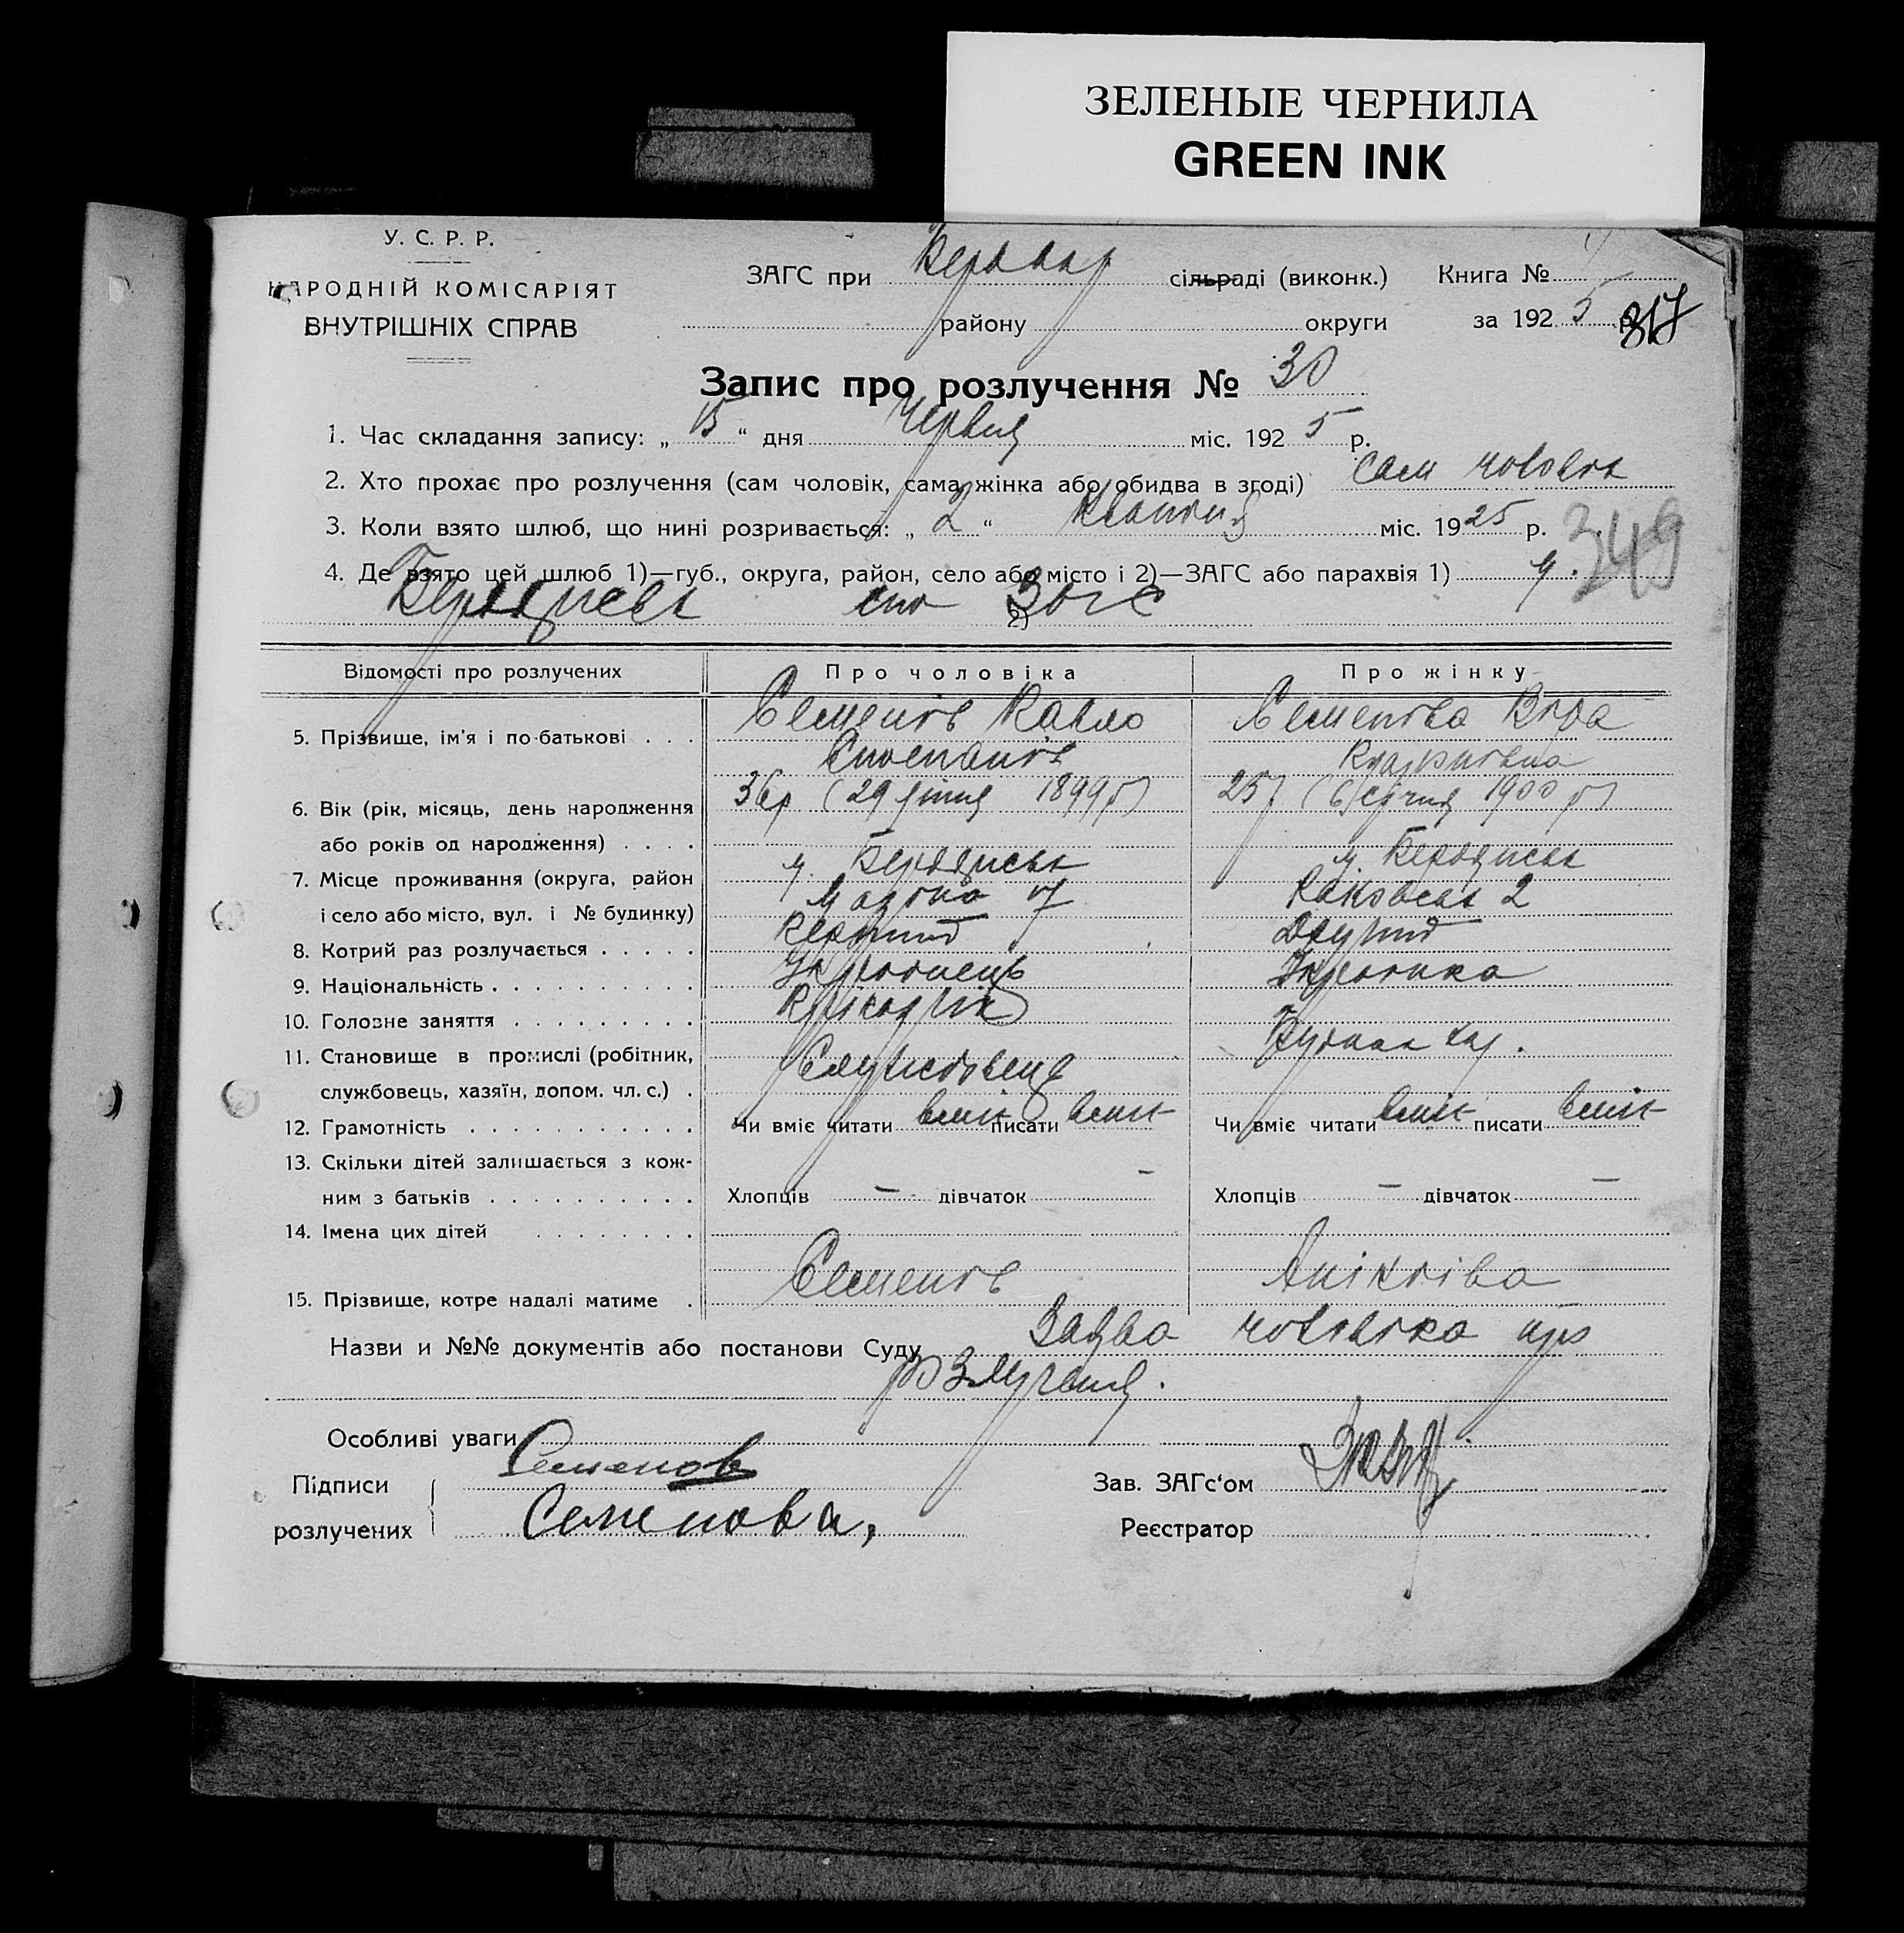 ЗЕЛЕНЫЕ ЧЕРНИЛА
GREEN INK
У. С. Р. Р.
НАРОДНІЙ КОМІСАРІЯТ
ВНУТРІШНІХ СПРАВ
ЗАГС при сільраді (виконк.) Книга №
району округи за 192 5 р. 317
349
Запис про розлучення № 30
1. Час складання запису: „ 15 “ дня Червня міс. 192 5 р.
2. Хто прохає про розлучення (сам чоловік, сама жінка або обидва в згоді) сам чоловік
3. Коли взято шлюб, що нині розривається: „ 2 “ Квітня міс. 19 25 р.
4. Де взято цей шлюб 1)—губ., округа, район, село або місто і 2)—ЗАГС або парахвія 1) м.
2) Загс
Відомості про розлучених Про чоловіка Про жінку
5. Прізвище, ім'я і по-батькові . . . Семенів Павло Семенова Віра
Степанів
6. Вік (рік, місяць, день народження 36р (29 липня 1899р) 25р (6 січня 1900 р)
або років од народження) . . . .
7. Місце проживання (округа, район м. Бердянськ м. Бердянськ
і село або місто, вул. і № будинку) 2
8. Котрий раз розлучається . . . . . Перший Другий
9. Національність . . . . . . . . . . Українець Українка
10. Головне заняття . . . . . . . . .
11. Становище в промислі (робітник, Службовець
службовець, хазяїн, допом. чл. с.) .
12. Грамотність . . . . . . . . . . . Чи вміє читати вміє писати вміє Чи вміє читати вміє писати вміє
13. Скільки дітей залишається з кож-
ним з батьків . . . . . . . . . . Хлопців — дівчаток — Хлопців — дівчаток —
14. Імена цих дітей . . . . . . . .
15. Прізвище, котре надалі матиме . Семенів Анікііва
Назви и №№ документів або постанови Суду Заява чоловіка про
розлучення.
Особливі уваги
Підписи Семенов Зав. ЗАГс‘ом
розлучених Семенова, Реєстратор